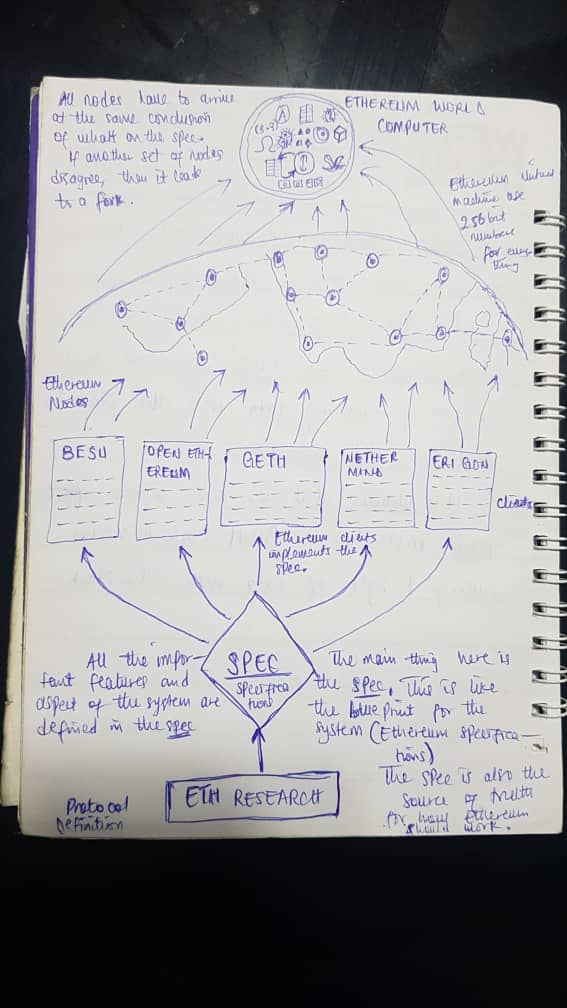 All nodes have to arrive
at the same conclusion
of what's on the spec.
If another set of nodes
disagree, then it leads
to a fork.
ETHEREUM WORLD
COMPUTER
Ethereum Virtual
machine use
256 bit
numbers
for every
thing
Ethereum
Nodes
BESU
OPEN ETH-
EREUM
GETH
NETHER
MIND
ERIGON
clients
Ethereum clients
implements the
spec.
SPEC
Specifica
tions
All the impor-
tant features and
aspect of the system are
defined in the spec
The main thing here is
the spec. This is like
the blueprint for the
system (Ethereum specifica-
tions)
The spec is also the
source of truth
for how Ethereum
should work.
ETH RESEARCH
Protocol
Definition